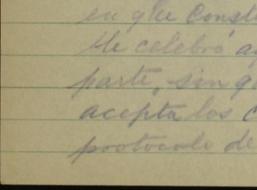 en que const
se celebró a
parte, sin q
acepta los c
protocolo de